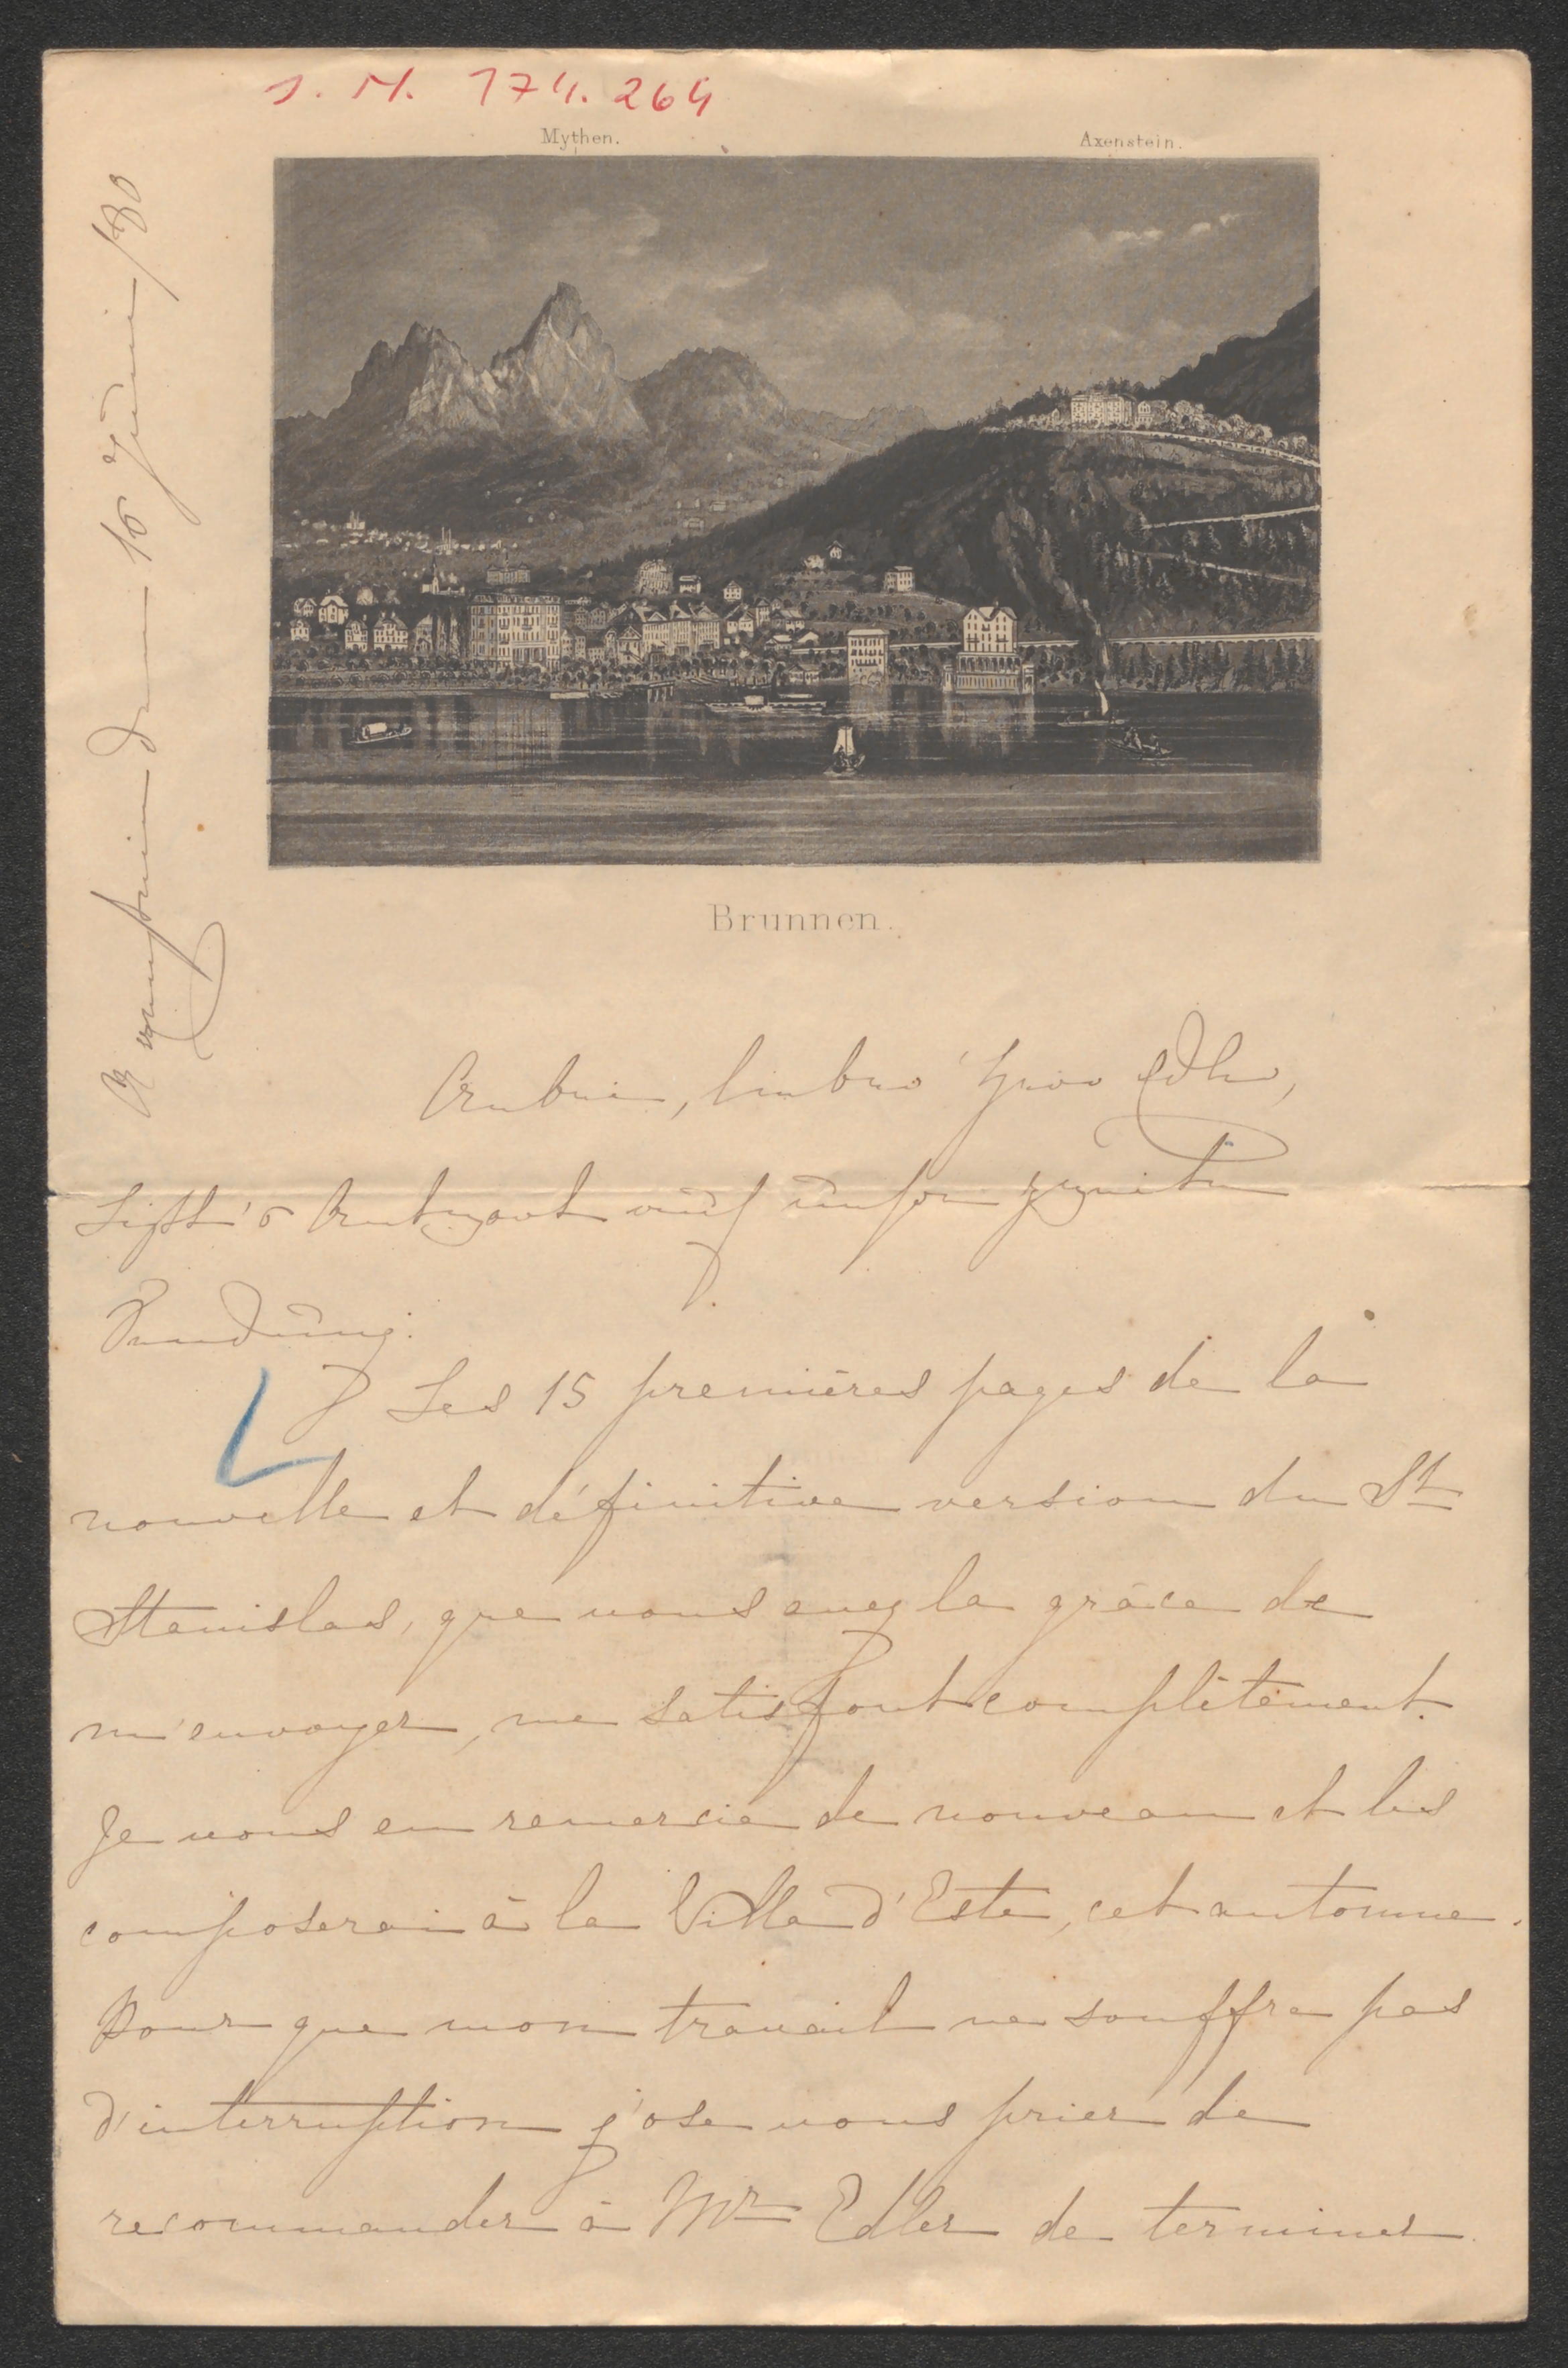 J. N. 174.264
Mythen.
Axenstein.
Brunnen.
Axenstein den 16 Juni /80
Lieber Herr Edler,
Liszt's Antwort auf unsere zweite
Sendung:
Les 15 premières pages de la
nouvelle et définitive version du St
Stanislas, que vous avez la grâce de
m'envoyer, me satisfont complètement.
Je vous en remercie de nouveau et les
composerai à la Villa d'Este, cet automne.
Pour que mon travail ne souffre pas
d'interruption j'ose vous prier de
recommander à Mr Edler de terminer